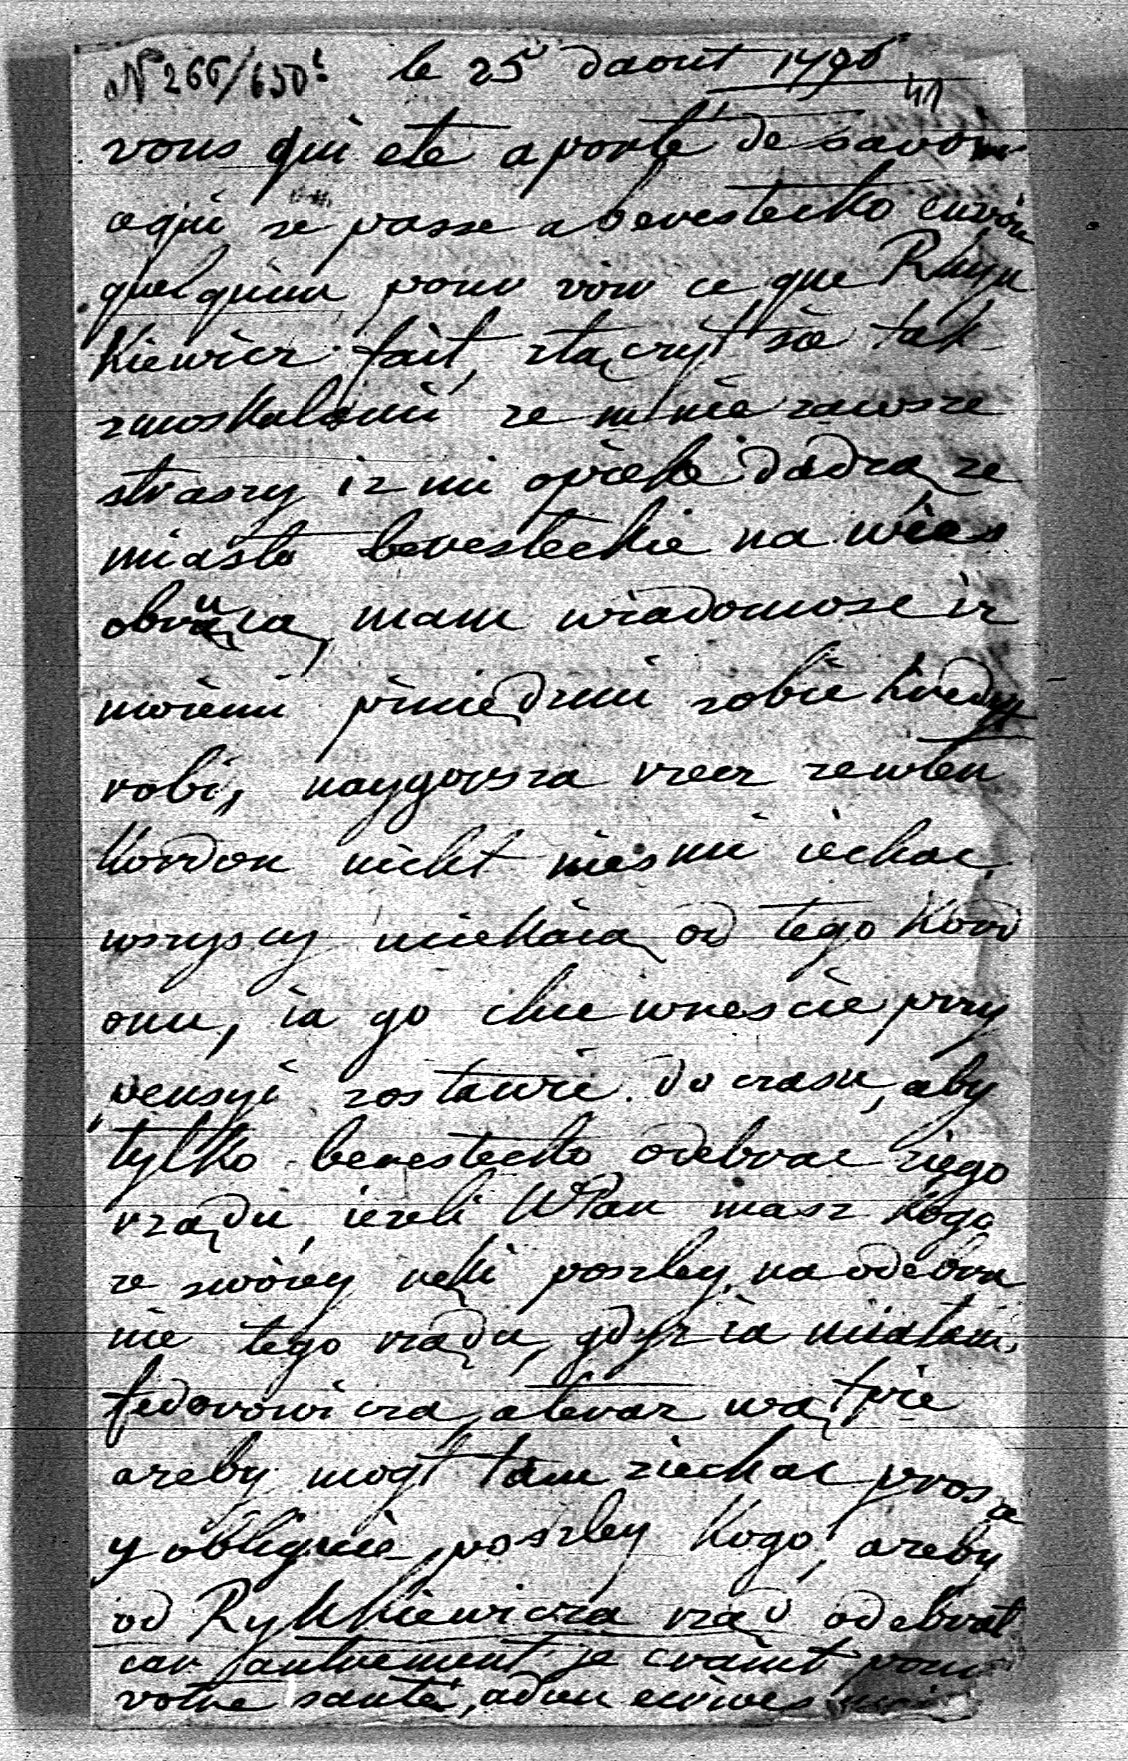 N 266/650. le 25 daout 1796
41
vous qui ete a porté de savoir
cqui se passe a berestecko envoie
quelquun pour voir ce que Rhyn
Kiewicz fait, złączył sie tak
zmoskalami ze mnie zawsze
straszy iz mi opieke dadzą ze
miasto beresteckie na wies
obrucą, mam wiadomosc iz
moiemi pieniedzmi sobie kredyt
robi, naygorsza rzecz zewten
Kordon nicht niesmi iechac
wszyscy uciekaią od tego Kord
onu, ia go chce wrescie przy
pensyi zostawic do czasu, aby
tylko berestecko odebrac ziego
rządu, iezeli WPan masz Kogo
ze swoiey ręki poszley na odebra
nie tego rządu, gdyz ia miałam
fedorowicza, ateraz wątpie
azeby mogł tam ziechac prosze
y obliguie poszley Kogo, azeby
od Rynkiewicza rząd odebrał
car autrement je craint pour
votre santé, adieu ecrives moi